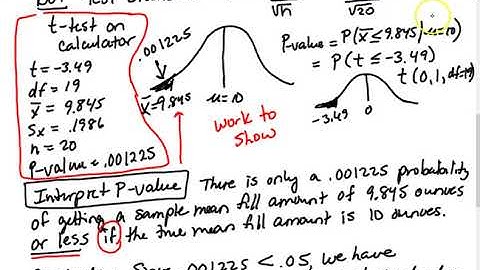 t-test on
calculator
t = -3.49
df = 19
x̄ = 9.845
Sx = .1986
n = 20
P-value = .001225
√n
√20
.001225
x̄=9.845
μ=10
work to
show
P-value = P(x̄ ≤ 9.845 | μ=10)
= P(t ≤ -3.49)
t(0,1,df=19)
-3.49
0
Interpret P-value There is only a .001225 probability
of getting a sample mean fill amount of 9.845 ounces
or less if, the true mean fill amount is 10 ounces.
.001225 < .05, we have